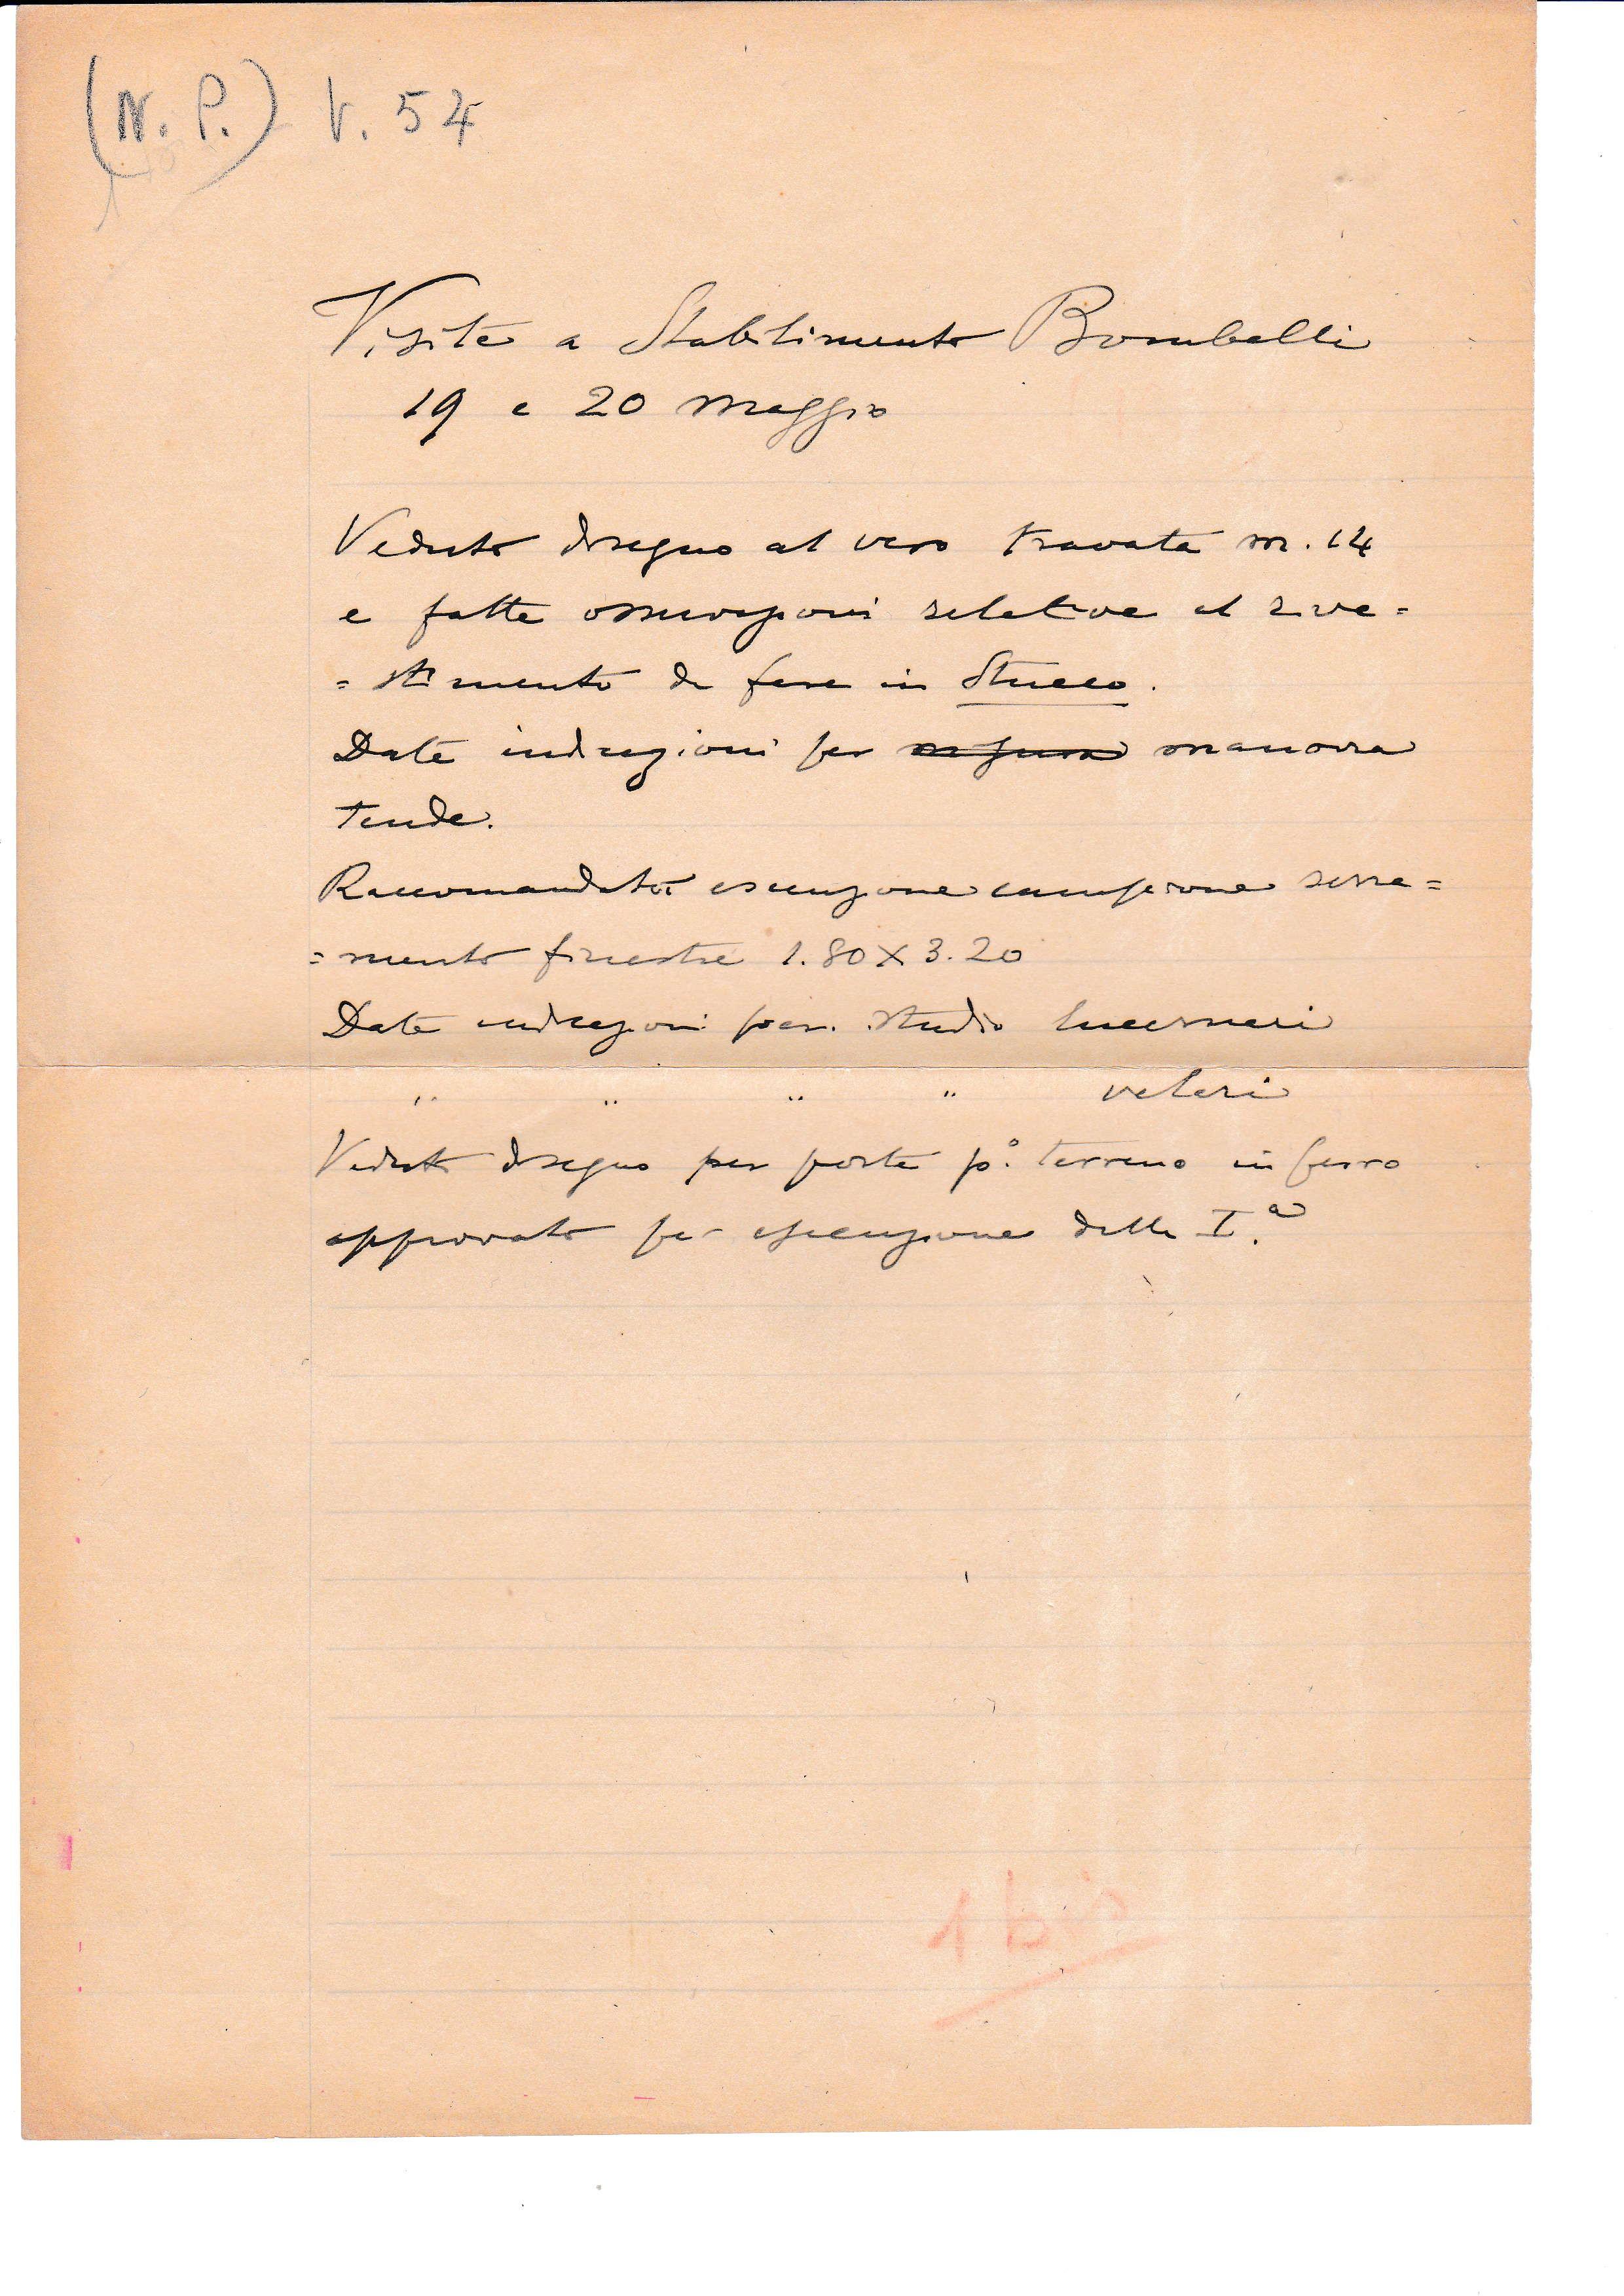 (N. P.) V. 54
Visite a Stabilimento Bombelli
19 e 20 maggio
Veduto disegno al vero travata m. 14
e fatte osservazioni relative al rive=
=stimento da fare in Stucco.
Date indicazioni per manovra
tende.
Raccomandato esecuzione campione serra=
=mento finestre 1.80 X 3.20
Date indicazioni per studio lucernari
" " " " velari
Veduto disegno per porte p.° terreno in ferro
approvato per esecuzione della I.a
1 bis